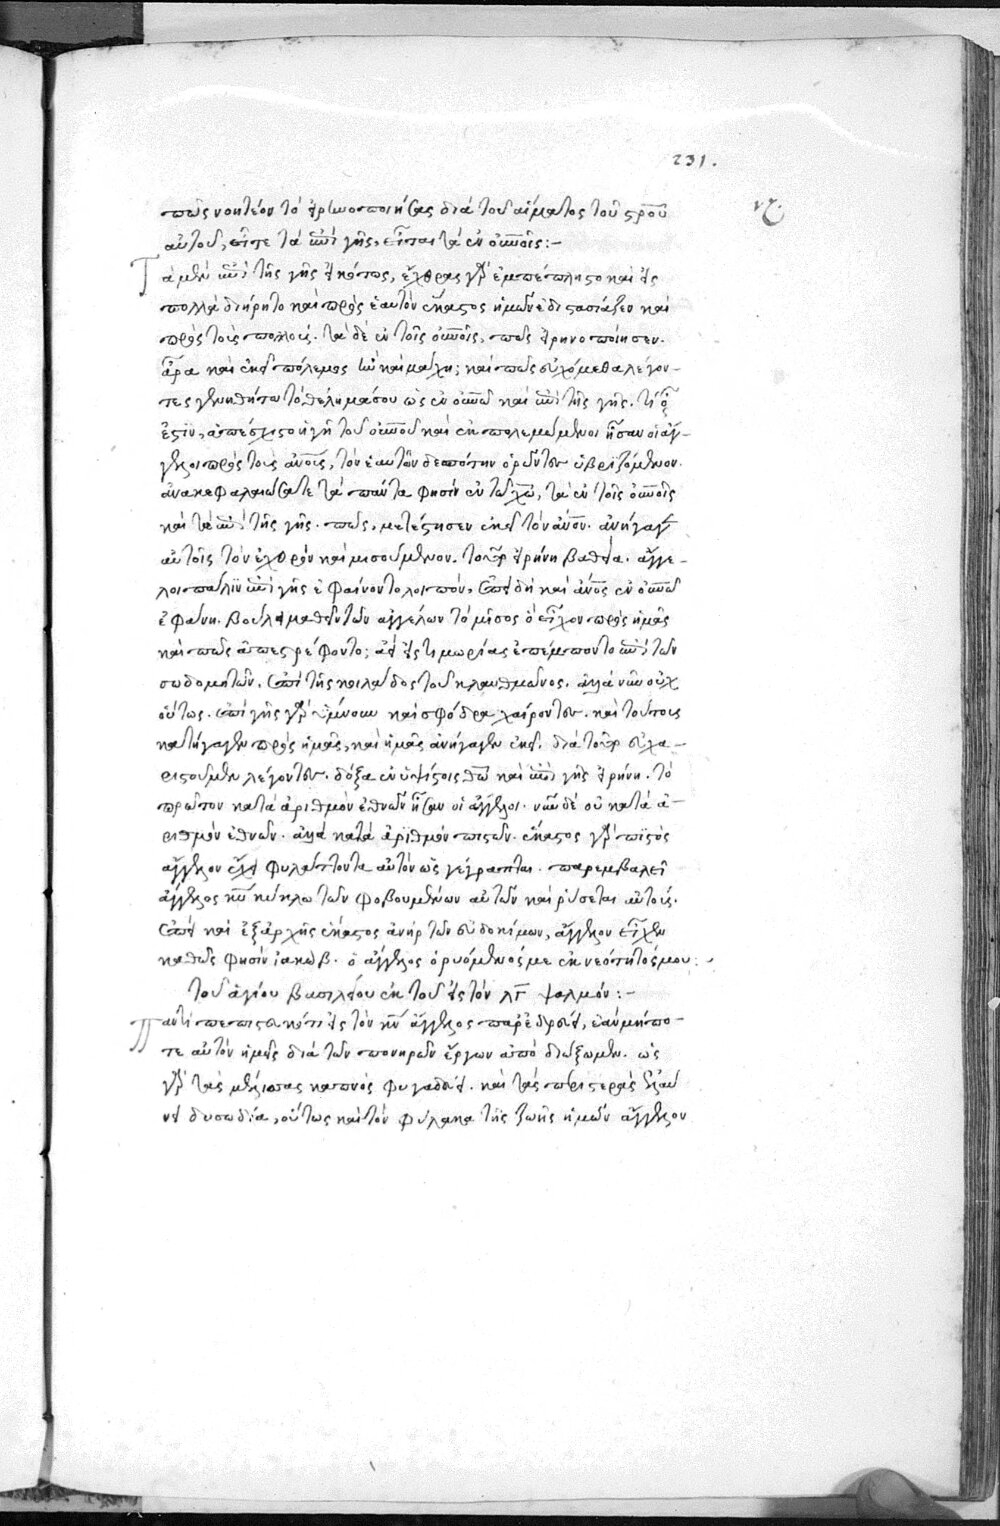 231.
νζ.
πῶς νοητέον τὸ εἰρηνοποιήσας διὰ τοῦ αἵματος τοῦ σρ̅οῦ
αὐτοῦ, εἴτε τὰ ἐπὶ γῆς, εἴτε τὰ ἐν οὐνοῖς:-
Τὰ μὲν ἐπὶ τῆς γῆς εἰκότως, ἔχθρας γὰρ ἐμπέπληστο καὶ εἰς
πολλὰ διῄρητο καὶ πρὸς ἑαυτὸν ἕκαστος ἡμῶν ἐδιστασίαζεν καὶ
πρὸς τοὺς πολλούς. τὰ δὲ ἐν τοῖς οὐνοῖς, πῶς εἰρηνοποίησεν.
ἆρα καὶ ἐκεῖ πόλεμος ἦν καὶ μάχη; καὶ πῶς εὐχόμεθα λέγον-
τες γενηθήτω τὸ θέλημά σου ὡς ἐν οὐνῶ καὶ ἐπὶ τῆς γῆς. τί οὖν
ἐστιν, ἀπέσχιστο ἡ γῆ τοῦ οὐνοῦ καὶ ἐκπολεμώμενοι ἦσαν οἱ ἄγ-
γελοι πρὸς τοὺς ἀνους, τὸν ἑαυτῶν δεσπότην ὁρῶντες ὑβριζόμενον.
ἀνακεφαλαιώσατε τὰ πάντα φησὶν ἐν τῶ χῶ, τὰ ἐν τοῖς οὐνοῖς
καὶ τὰ ἐπὶ τῆς γῆς. πῶς, μετέστησεν ἐκεῖ τὸν ἀνον. ἀνήγαγεν
αὐτοῖς τὸν ἐχθρὸν καὶ μισούμενον. τοῦτο εἰρήνη βαθεῖα. ἄγγε-
λοι πάλιν ἐπὶ γῆς ἐφαίνοντο λοιπόν, ἐπειδὴ καὶ ἀνος ἐν οὐνῶ
ἐφάνη. βούλει μαθεῖν τῶν ἀγγέλων τὸ μῖσος ὃ εἶχον πρὸς ἡμᾶς
καὶ πῶς ἀπεστρέφοντο; ἀεὶ εἰς τιμωρίας ἐπέμποντο ἐπὶ τῶν
σοδομητῶν, ἐπὶ τῆς κοιλάδος τοῦ κλαυθμῶνος. ἀλλὰ νῦν οὐχ
οὕτως. ἐπὶ γῆς γὰρ ὑμνοῦσι καὶ σφόδρα χαίροντες. καὶ τούτους
κατήγαγεν πρὸς ἡμᾶς, καὶ ἡμᾶς ἀνήγαγεν ἐκεῖ. διὰ τοῦτο εὐχα-
ριστοῦμεν λέγοντες. δόξα ἐν ὑψίστοις θῶ καὶ ἐπὶ γῆς εἰρήνη. τὸ
πρῶτον κατὰ ἀριθμὸν ἐθνῶν ἦσαν οἱ ἄγγελοι. νῦν δὲ οὐ κατὰ ἀ-
ριθμὸν ἐθνῶν. ἀλλὰ κατὰ ἀριθμὸν πιστῶν. ἕκαστος γὰρ πιστὸς
ἄγγελον ἔχει φυλάττοντα αὐτὸν ὡς γέγραπται. παρεμβαλεῖ
ἄγγελος κυ κύκλω τῶν φοβουμένων αὐτὸν καὶ ῥύσεται αὐτούς.
ἐπεὶ καὶ ἐξαρχῆς ἕκαστος ἀνὴρ τῶν εὐδοκίμων, ἄγγελον εἶχεν
καθώς φησιν ἰακώβ. ὁ ἄγγελος ὁ ῥυόμενός με ἐκ νεότητός μου:
τοῦ ἁγίου βασιλείου ἐκ τοῦ εἰς τὸν λγ ψαλμόν:-
Παντὶ πεπιστευκότι εἰς τὸν κν ἄγγελος παρεδρεύει, ἐὰν μήπο-
τε αὐτὸν ἡμεῖς διὰ τῶν πονηρῶν ἔργων ἀποδιώξωμεν. ὡς
γὰρ τὰς μελίσσας καπνὸς φυγαδεύει. καὶ τὰς περιστερὰς ἐξελαύ
νει δυσωδία, οὕτως καὶ τὸν φύλακα τῆς ζωῆς ἡμῶν ἄγγελον